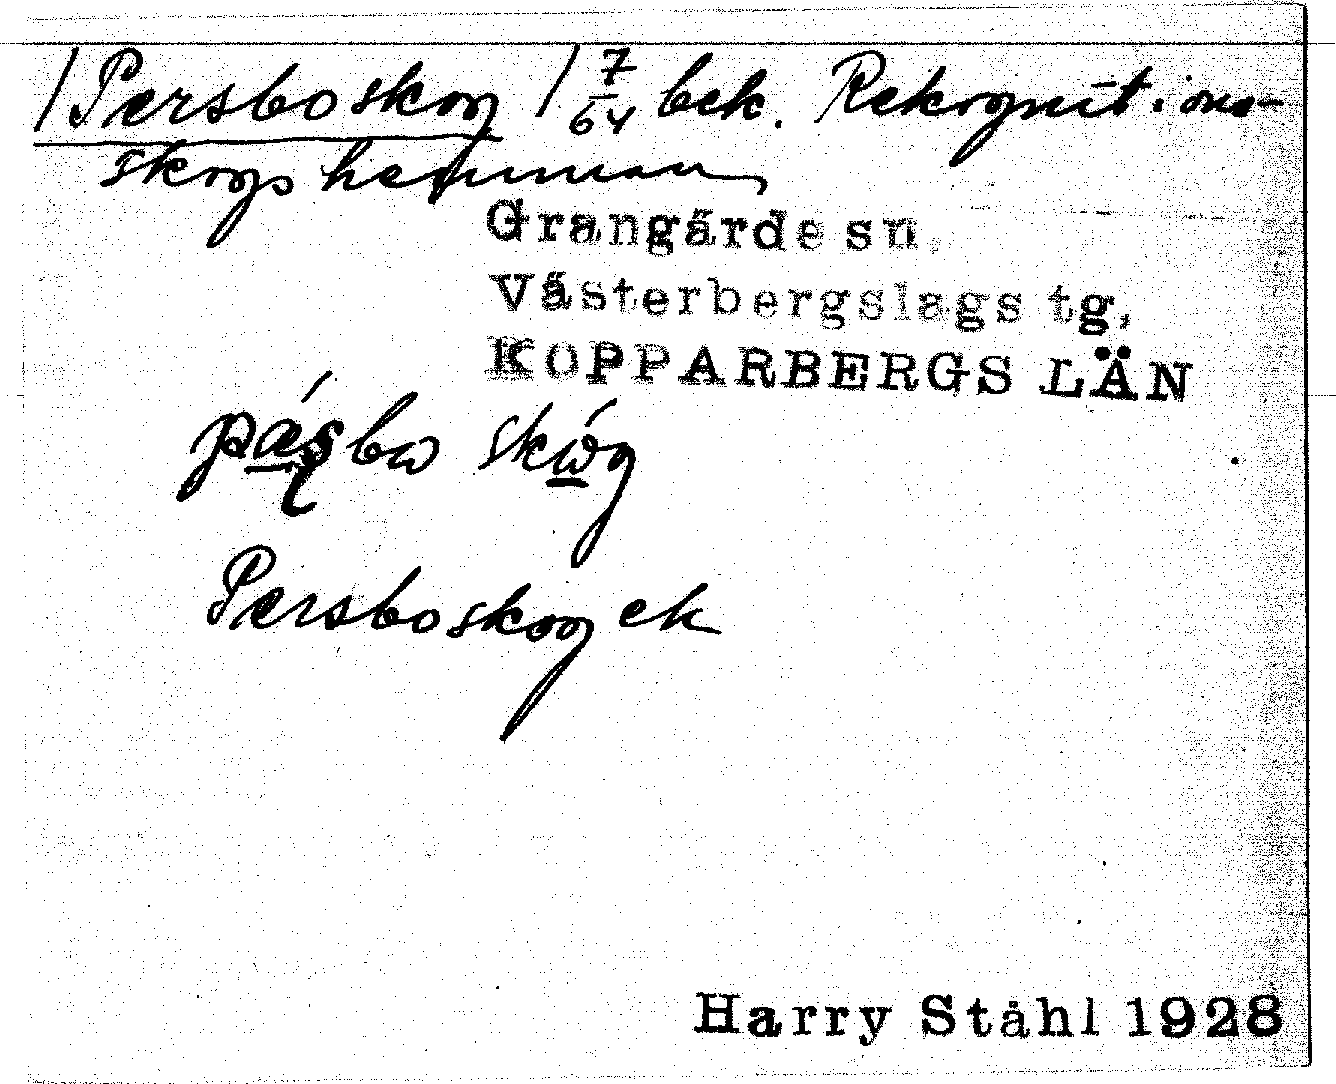 /Persboskog / 7/64 bek. Rekognitions-
skogshemman
Grangärde sn.
Västerbergslags tg,
KOPPARBERGS LÄN
Persboskog ek
Harry Ståhl 1928